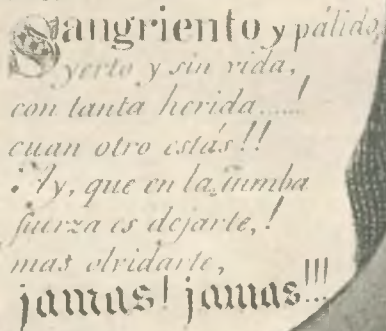 Sangriento y pálido,
yerto y sin vida,
con tanta herida.....!
cuan otro estás!!
¡Ay, que en la tumba
fuerza es dejarte,!
mas olvidarte,
jamas! jamas!!!